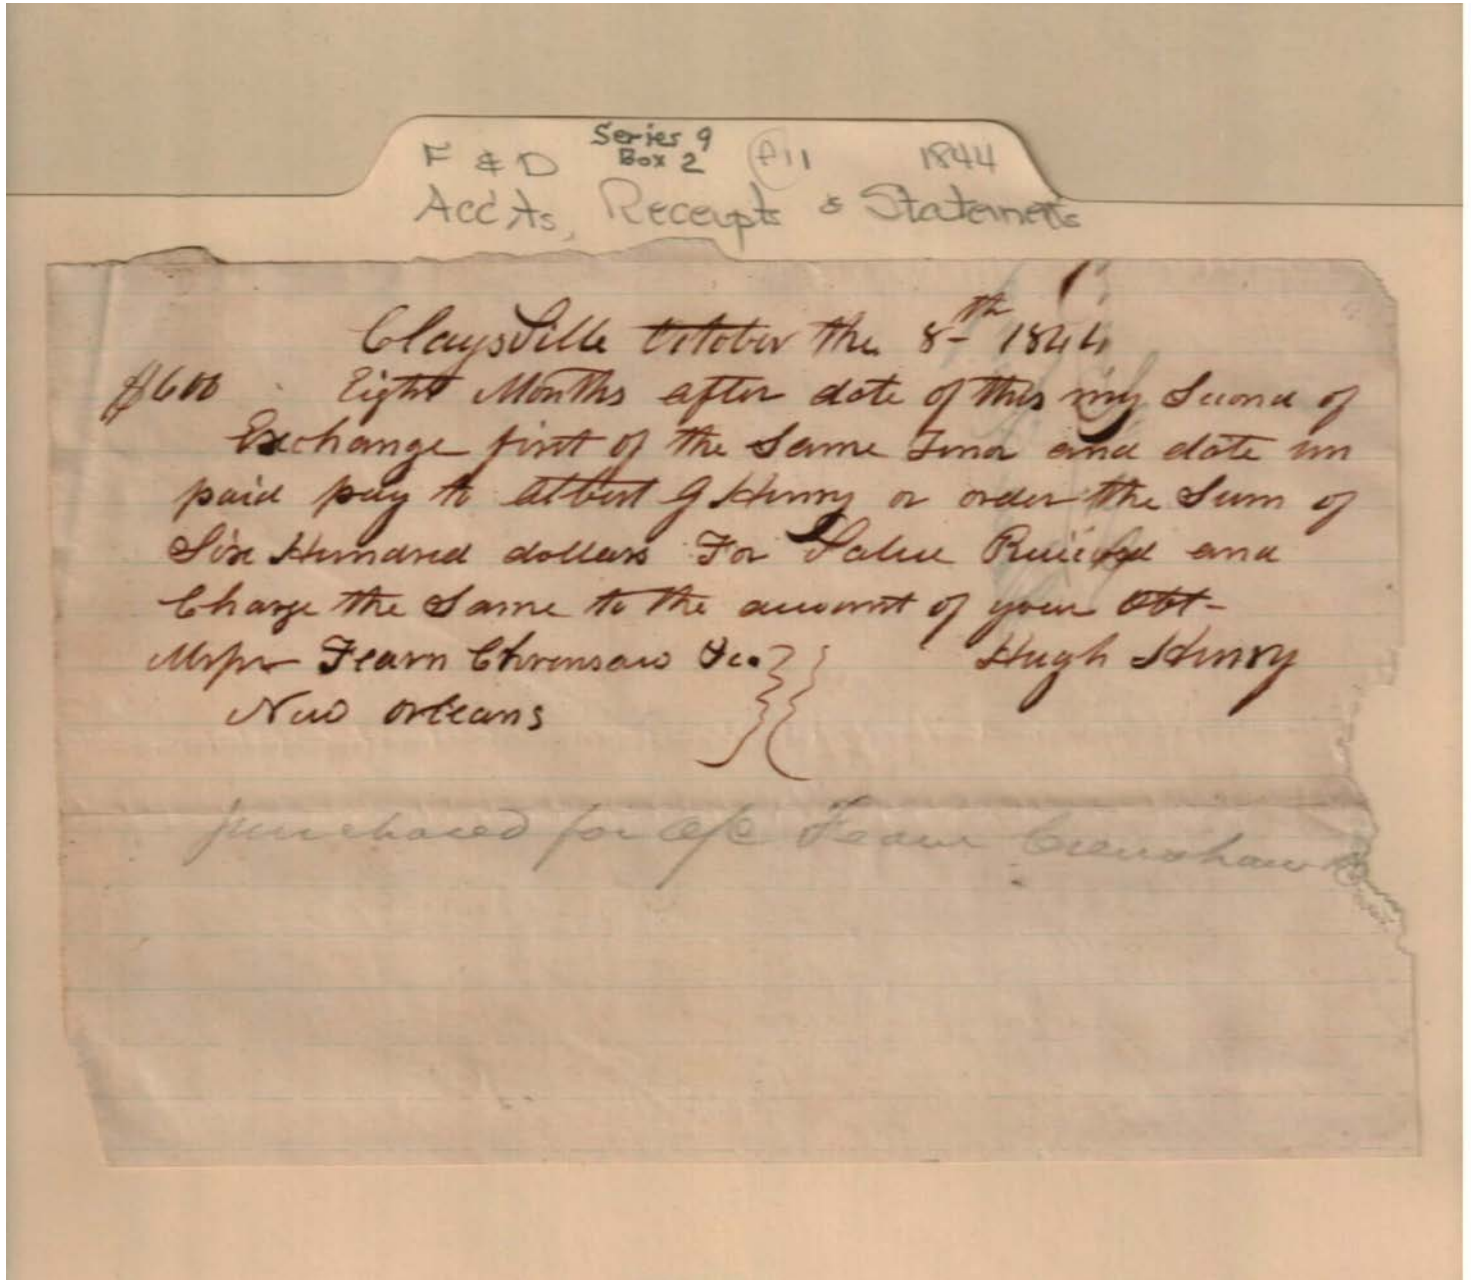 Series 9
F & D Box 2 A11 1844
Acc'ts, Receipts & Statements
Claysville October the 8th 1844
$600 Eight Months after date of this my Second of
Exchange first of the Same Tenor and date un
paid pay to Albert G Henry or order the Sum of
Six Hundred dollars For Value Received and
Charge the Same to the account of your Obt-
Messrs Fearn Chrensaw &co.
Hugh Henry
New orleans
purchased for a/c Fearn Crenshaw &